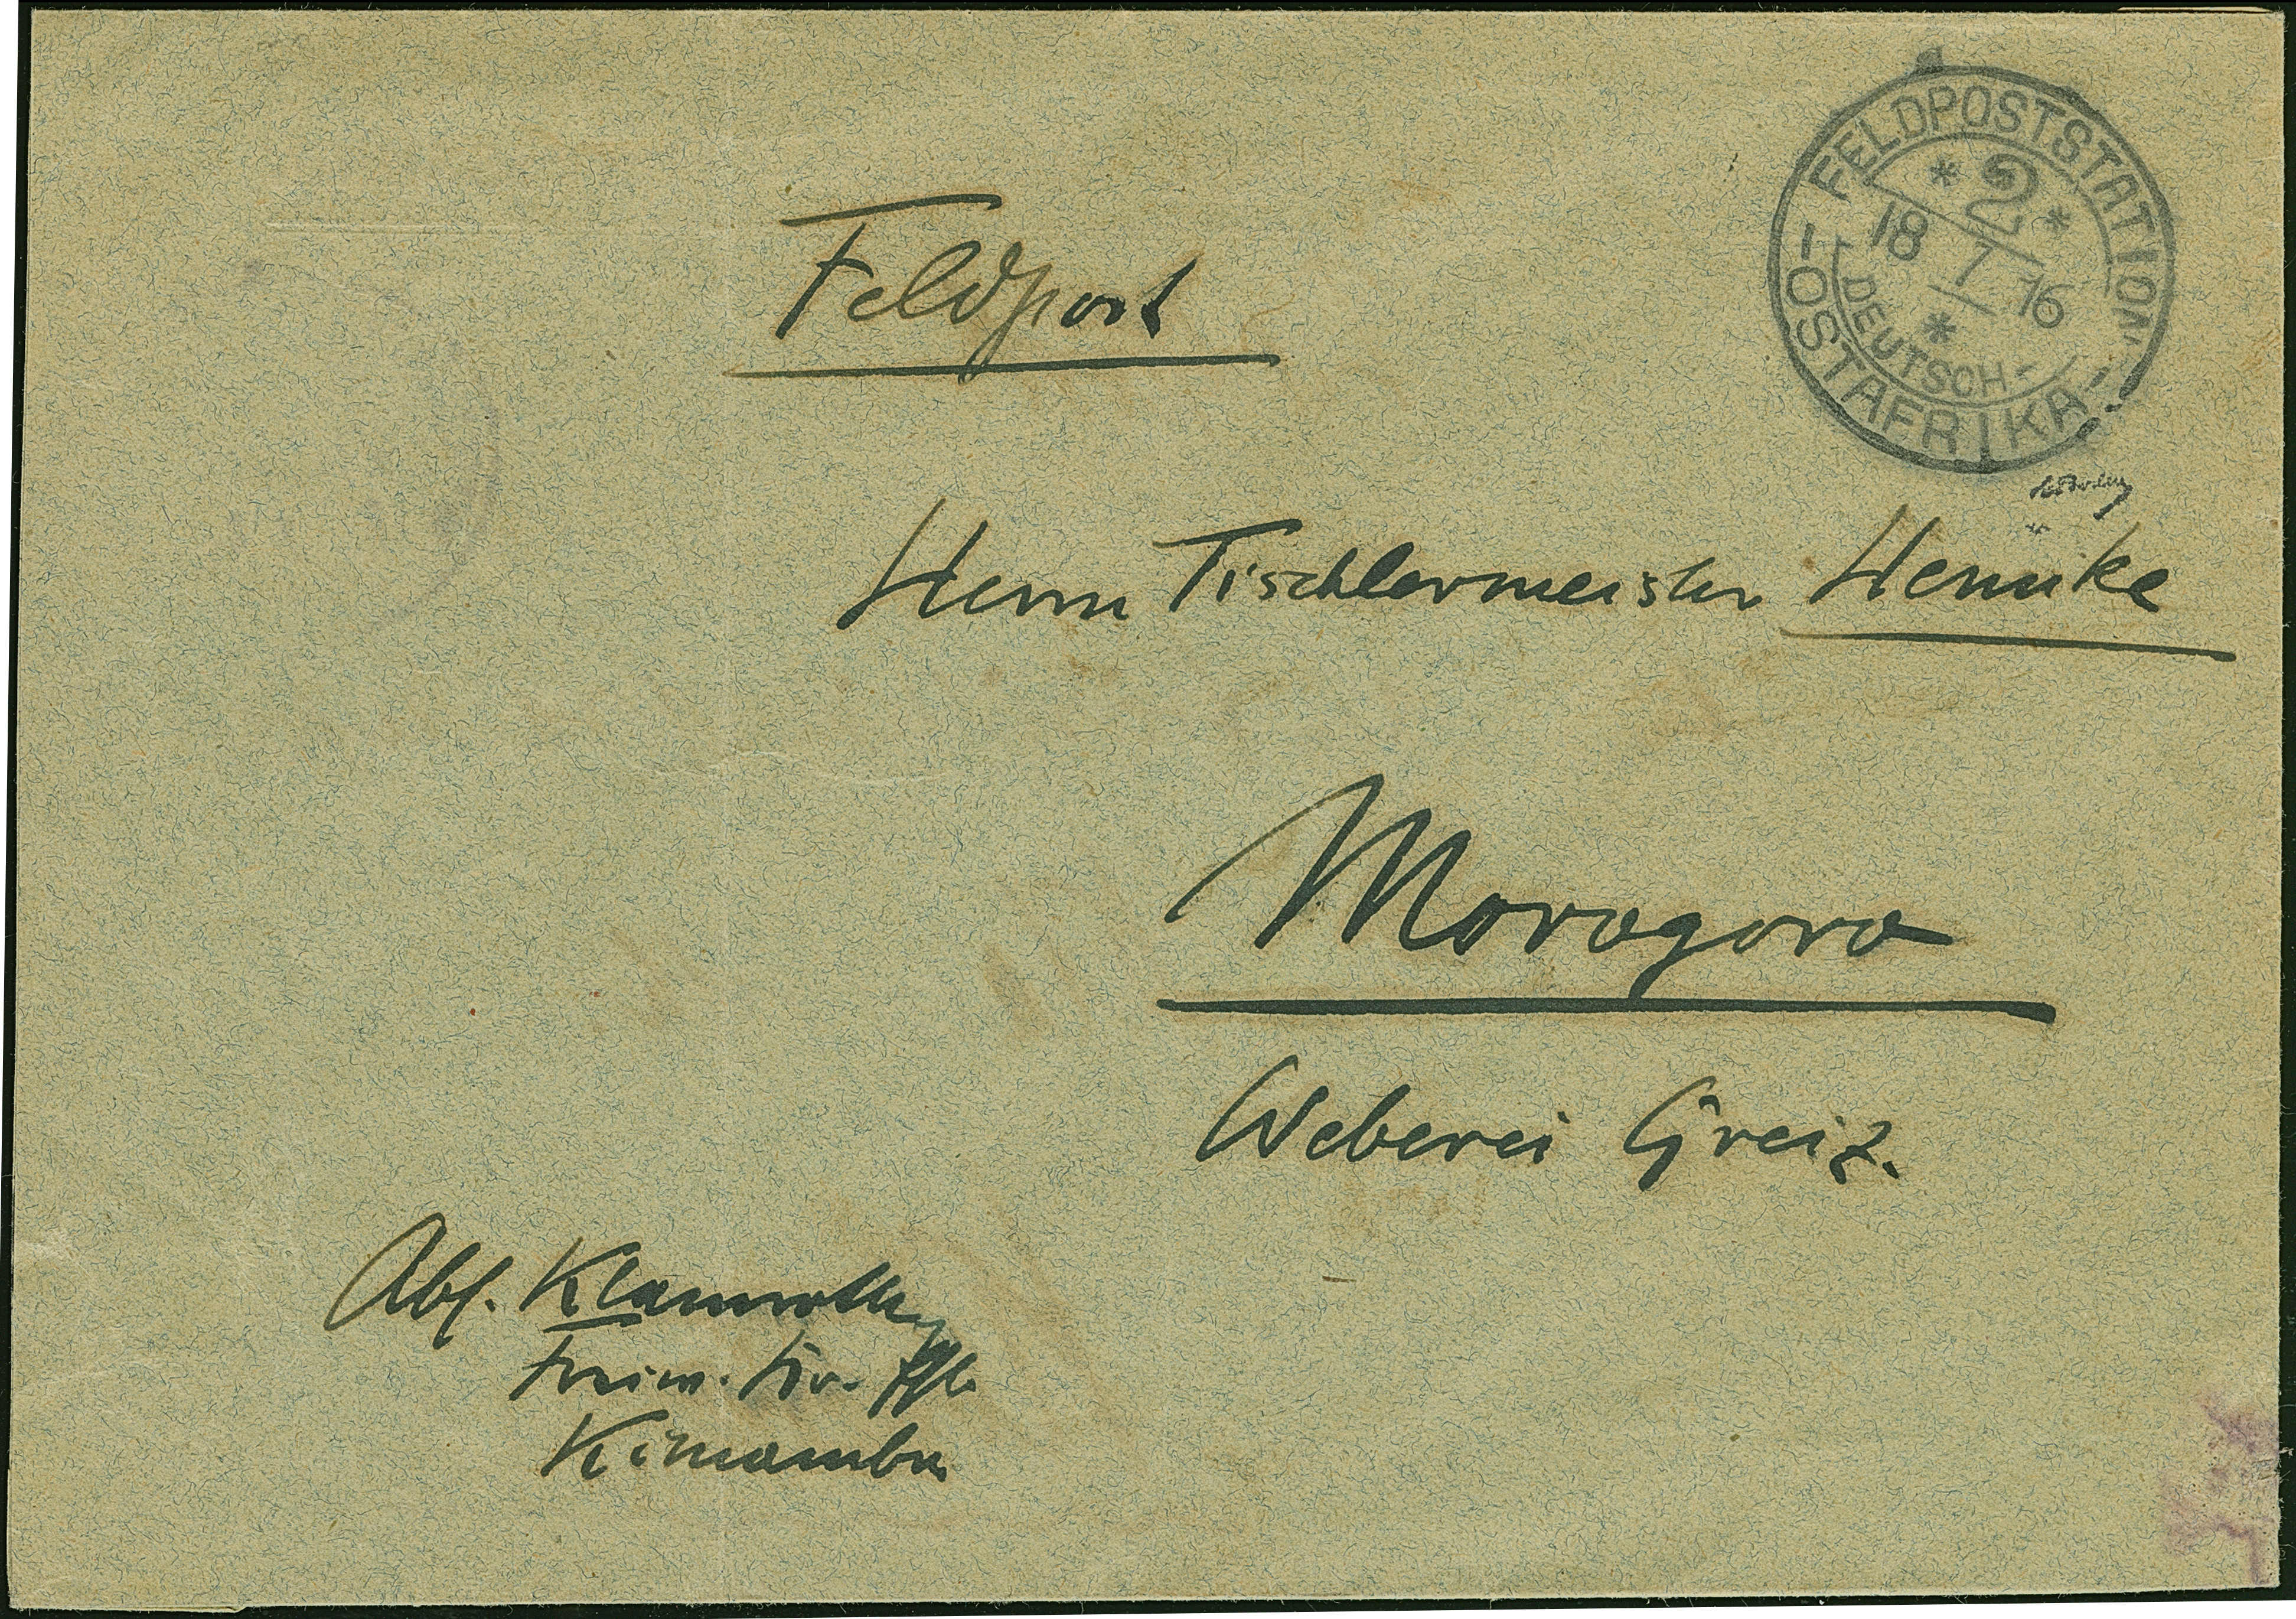 FELDPOSTSTATION
* 2 *
18 7 16
*
DEUTSCH-
- OSTAFRIKA -
Feldpost
Herrn Tischlermeister Hennike
Morogoro
Weberei Greiz.
Abs. Klamroth
Kimamba